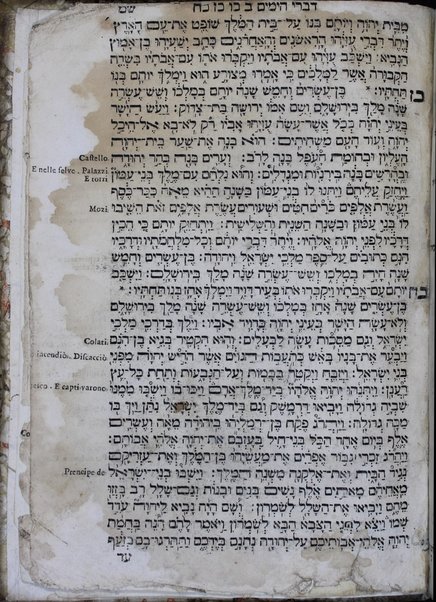 דברי הימים ב כו כז כח שמ
מבית יהוה ויותם בנו על־בית המלך שופט את־עם הארץ:
ויתר דברי עזיהו הראשנים והאחרנים כתב ישעיהו בן־אמוץ
הנביא: וישכב עזיהו עם־אבתיו ויקברו אתו עם־אבתיו בשדה
הקבורה אשר למלכים כי אמרו מצורע הוא וימלך יותם בנו
כז תחתיו: בן־עשרים וחמש שנה יותם במלכו ושש־עשרה
שנה מלך בירושלם ושם אמו ירושה בת־צדוק: ויעש הישר
בעיני יהוה ככל אשר־עשה עזיהו אביו רק לא־בא אל־היכל
יהוה ועוד העם משחיתים: הוא בנה את־שער בית־יהוה
Castello. העליון ובחומת העפל בנה לרב: וערים בנה בהר יהודה
E nelle selve. Palazzi. ובחרשים בנה בירניות ומגדלים: והוא נלחם עם מלך בני־עמון
E torri
ויחזק עליהם ויתנו לו בני־עמון בשנה ההיא מאה ככר־כסף
Mozi. ועשרת אלפים כרים חטים ושעורים עשרת אלפים זאת השיבו
לו בני עמון ובשנה השנית והשלישית: ויתחזק יותם כי הכין
דרכיו לפני יהוה אלהיו: ויתר דברי יותם וכל־מלחמתיו ודרכיו
הנם כתובים על־ספר מלכי ישראל ויהודה: בן־עשרים וחמש
שנה היה במלכו ושש־עשרה שנה מלך בירושלם: וישכב
כח יותם עם־אבתיו ויקברו אתו בעיר דויד וימלך אחז בנו תחתיו:
בן־עשרים שנה אחז במלכו ושש־עשרה שנה מלך בירושלם
ולא־עשה הישר בעיני יהוה כדויד אביו: וילך בדרכי מלכי
Colari. ישראל וגם מסכות עשה לבעלים: והוא הקטיר בגיא בן־הנם
Discacciò. ויבער את־בניו באש כתעבות הגוים אשר הריש יהוה מפני
בני ישראל: ויזבח ויקטר בבמות ועל־הגבעות ותחת כל־עץ
E captivarono. רענן: ויתנהו יהוה אלהיו ביד מלך ארם ויכו־בו וישבו ממנו
שביה גדולה ויביאו דרמשק וגם ביד־מלך ישראל נתן ויך־בו
מכה גדולה: ויהרג פקח בן־רמליהו ביהודה מאה ועשרים
אלף ביום אחד הכל בני־חיל בעזבם את־יהוה אלהי אבותם:
ויהרג זכרי גבור אפרים את־מעשיהו בן־המלך ואת־עזריקם
Prencipe de נגיד הבית ואת־אלקנה משנה המלך: וישבו בני־ישראל
מאחיהם מאתים אלף נשים בנים ובנות וגם־שלל רב בזזו
מהם ויביאו את־השלל לשמרון: ושם היה נביא ליהוה עדד
שמו ויצא לפני הצבא הבא לשמרון ויאמר להם הנה בחמת
יהוה אלהי־אבותיכם על־יהודה נתנם בידכם ותהרגו־בם בזעף
עד